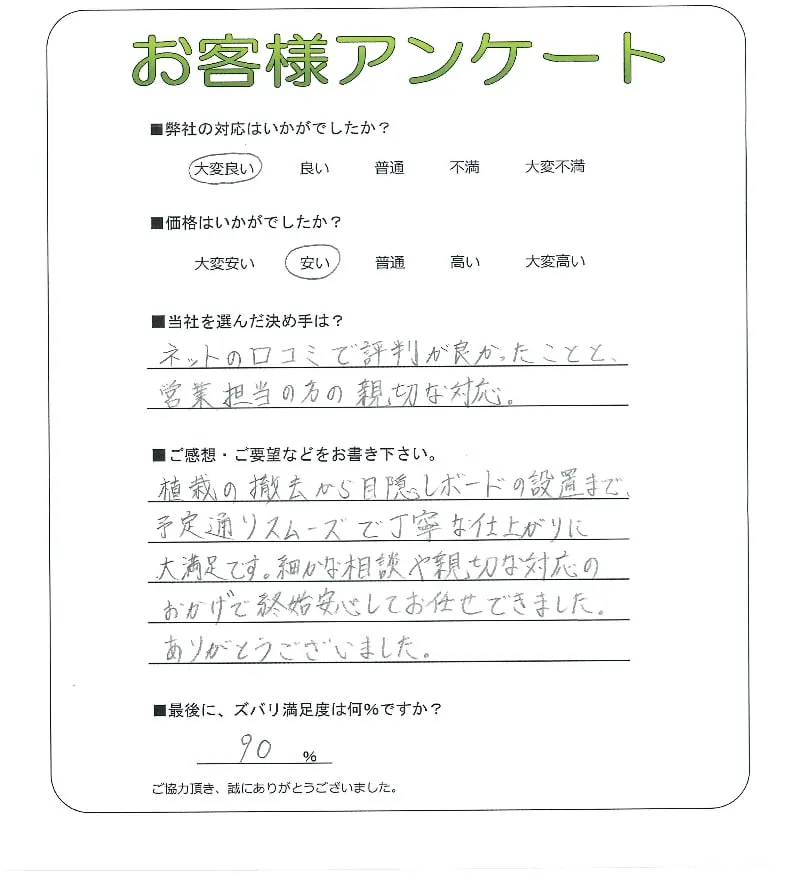 お客様アンケート
■弊社の対応はいかがでしたか？
大変良い 良い 普通 不満 大変不満
■価格はいかがでしたか？
大変安い 安い 普通 高い 大変高い
■当社を選んだ決め手は？
ネットの口コミで評判が良かったことと、
営業担当の方の親切な対応。
■ご感想・ご要望などをお書き下さい。
植栽の撤去から目隠しボードの設置まで、
予定通りスムーズで丁寧な仕上がりに
大満足です。細かな相談や親切な対応の
おかげで終始安心してお任せできました。
ありがとうございました。
■最後に、ズバリ満足度は何%ですか？
90 %
ご協力頂き、誠にありがとうございました。